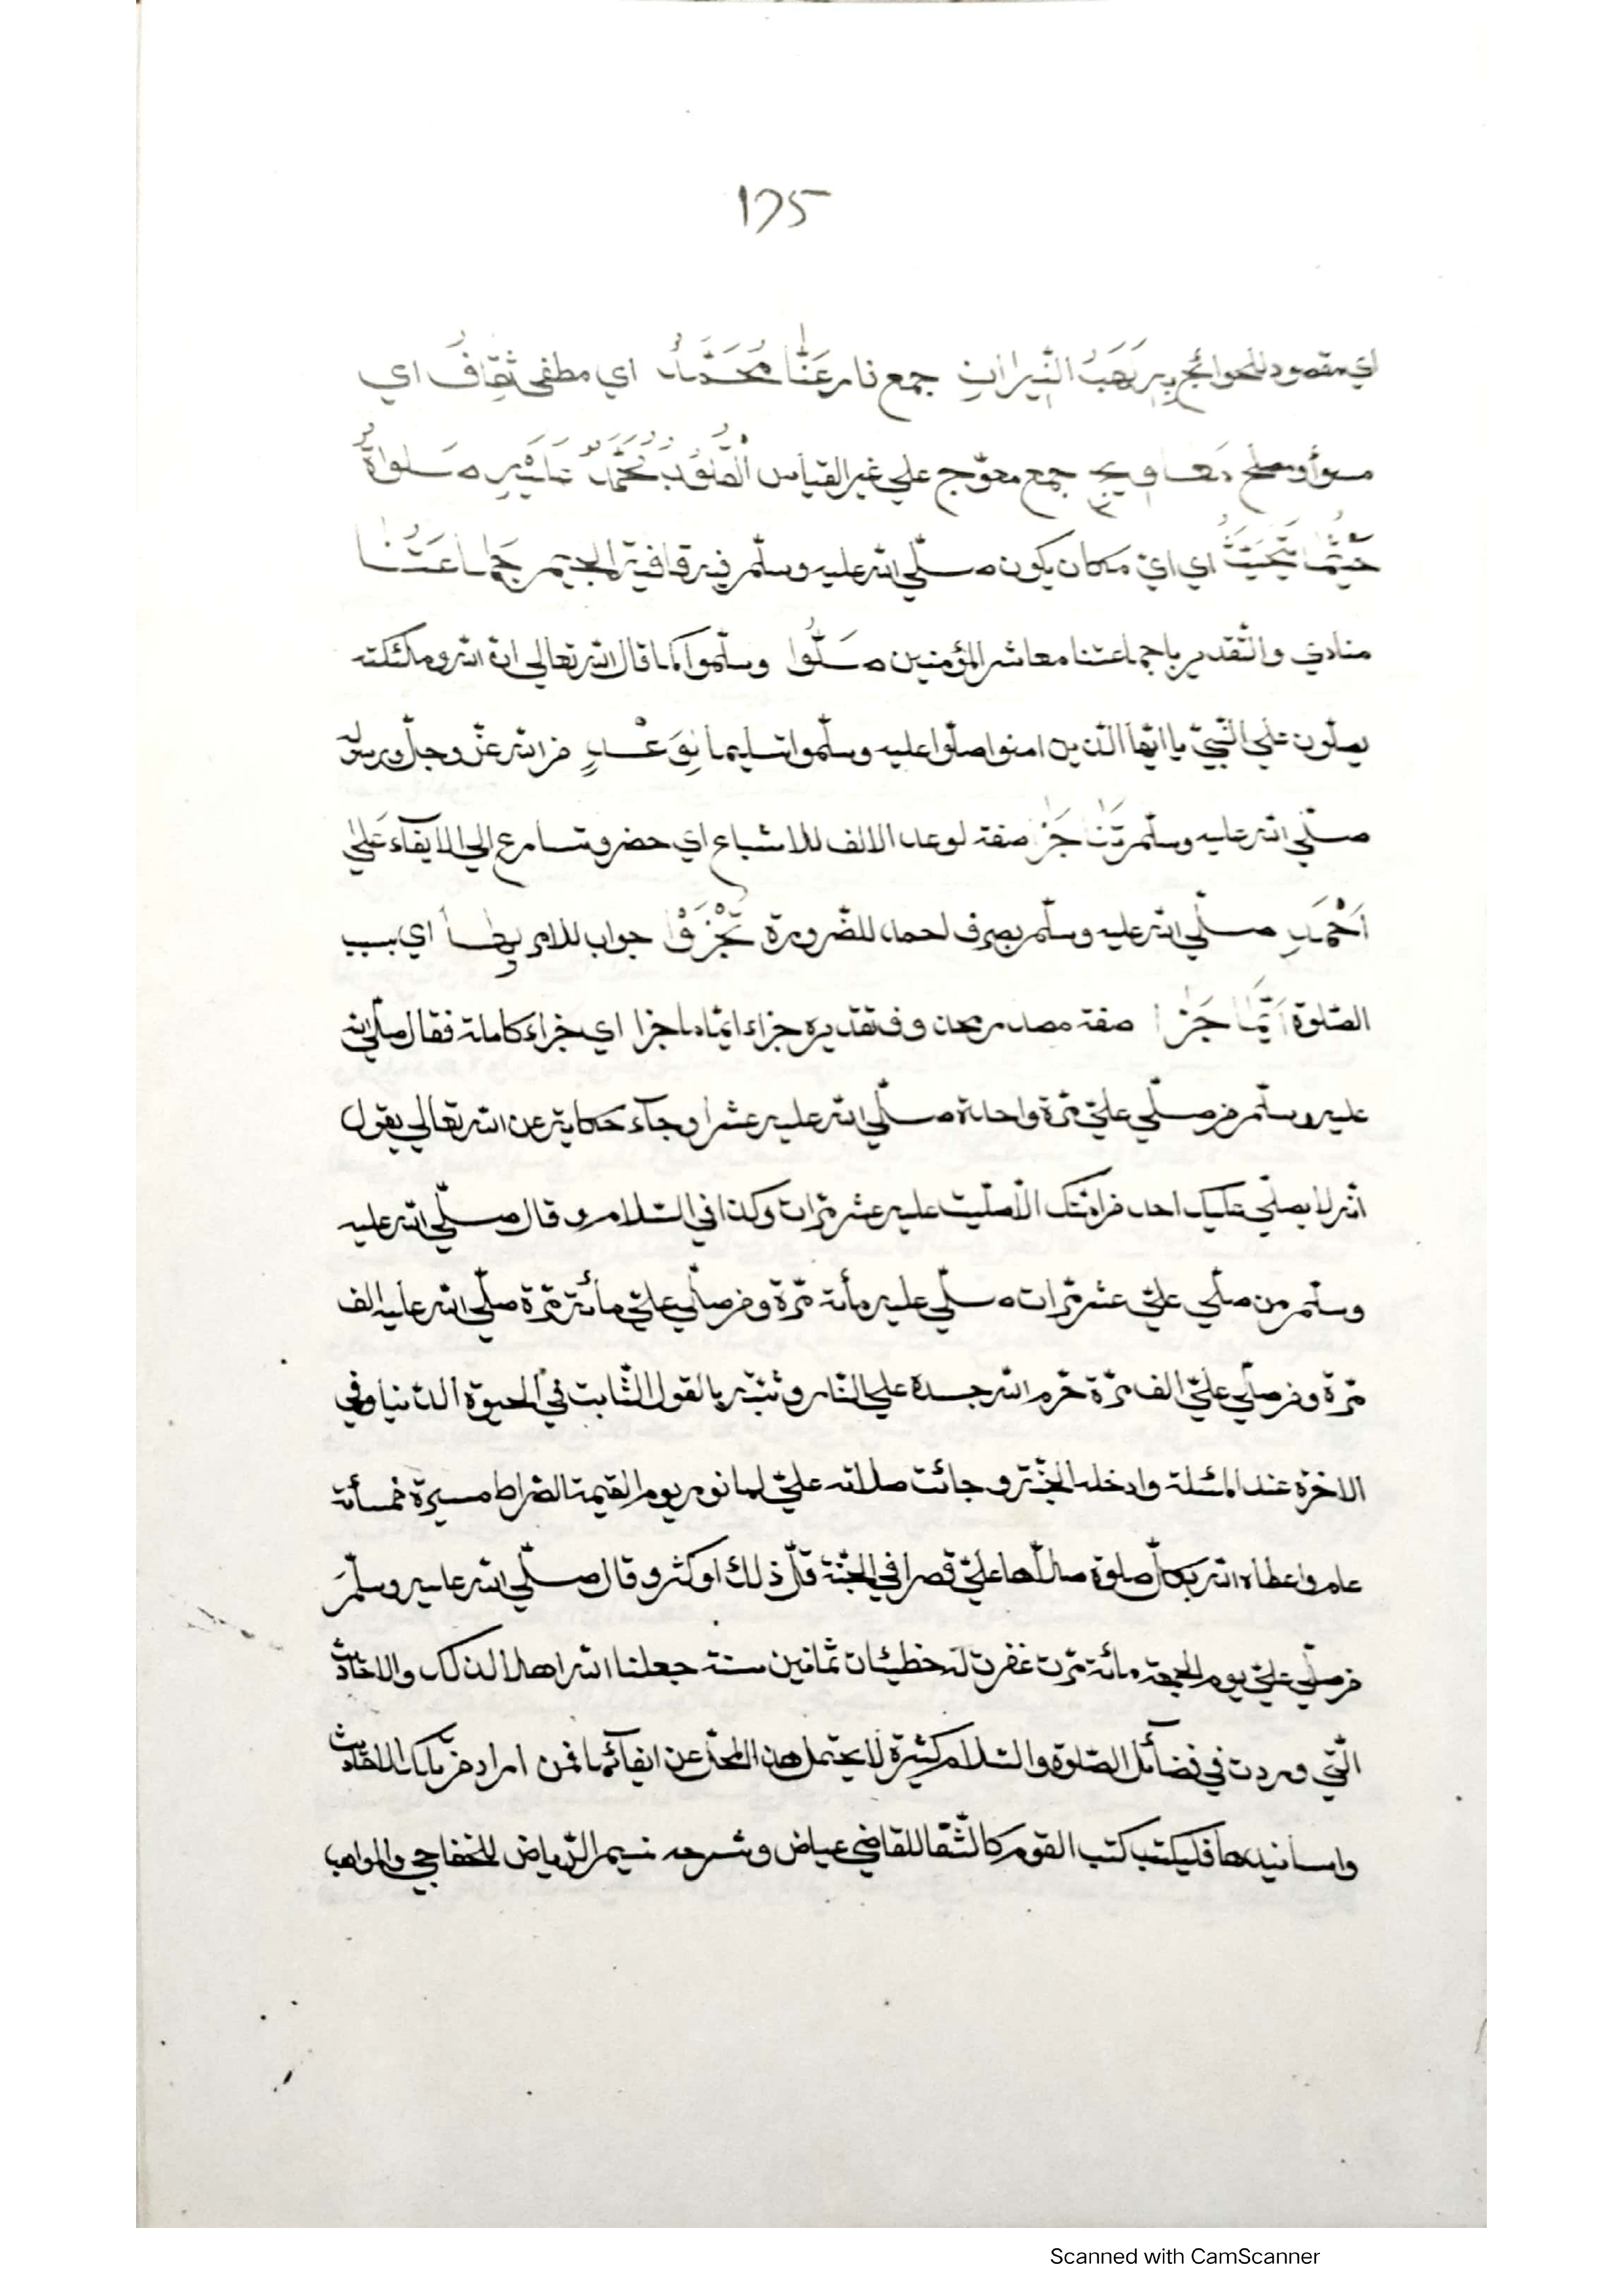 175
اي مقصود للحوائج بِهِ رَهَبُ النِّيرانِ جمع نار عَنَّا مُحَمَّدٌ اي مطفى ثِقَافُ اي
مسوأ ومصلح مَعَاوِيجِ جمع معوّج علي غير القياس الْقُلُوبِ مُحَمَّدٌ عَلَيْهِ صَلواةٌ
حَيْثُمَا اي اي مكان يكون صلّي الله عليه وسلّم في قافية الجيم جَمَاعَتَنَا
منادي والتّقدير يا جماعتنا معاشر المؤمنين صَلُّوا وسلّموا كما قال الله تعالي انّ الله وملئكته
يصلّون علي النّبيّ يا ايّها الّذين امنوا صلّوا عليه وسلّموا تسليما بِوَعْدٍ من الله عزّ وجلّ ورسوله
صلّي الله عليه وسلّم جَزَا صفة لوعد الالف للاشباع اي حضر وتسارع الي الايفاء عَلَي
اَحْمَدٍ صلّي الله عليه وسلّم بصرف احمد للضّرورة تُجْزَوْا جواب للامر بِهَا اي بسبب
الصّلوة اَتَمَّا جَزَا صفة مصدر محذوف تقديره جزاء اتمّا جزا اي جزاء كاملة فقال صلّي الله
عليه وسلّم من صلّي عليّ مرّة واحدة صلّي الله عليه عشرا وجآء حكاية عن الله تعالي يقول
انّه لا يصلّي عليك احد من امّتك الّا صلّيت عليه عشر مرّات وكذا في السّلام وقال صلّي الله عليه
وسلّم من صلّي عليّ عشر مرّات صلّي عليه مأئة مرّة ومن صلّي عليّ مأئة مرّة صلّي الله عليه الف
مرّة ومن صلّي عليّ الف مرّة حرّم الله جسده علي النّار وثبّته بالقول الثّابت في الحيوة الدّنيا وفي
الاخرة عند المسئلة وادخله الجنّة وجائت صلاته عليّ لها نور يوم القيمة الصّراط مسيرة خمسأئة
عام واعطاه الله بكلّ صلوة صلّاها عليّ قصرا في الجنّة قلّ ذلك او كثر وقال صلّي الله عليه وسلّم
من صلّي عليّ يوم الجمعة مائة مرّت غفرت له خطيئات ثمانين سنة جعلنا الله اهلا لذلك والاحاديث
الّتي وردت في فضآئل الصّلوة والسّلام كثيرة لا يحتمل هذا المحلّ عن ايفآئها فمن اراد من تلك الاحاديث
واسانيدها فليكتب كتب القوم كالشّفا للقاضي عياض وشرحه نسيم الرّياض للخفاجي والمواهب
Scanned with CamScanner